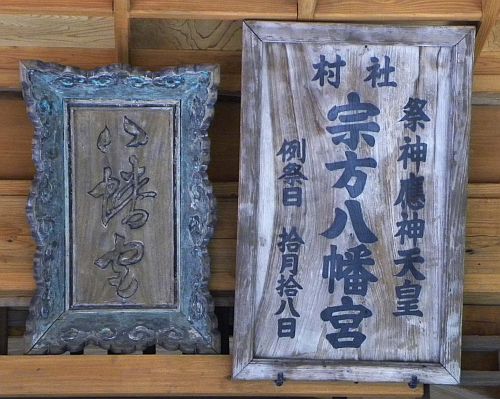 八幡宮
村社
祭神應神天皇
宗方八幡宮
例祭日 拾月拾八日